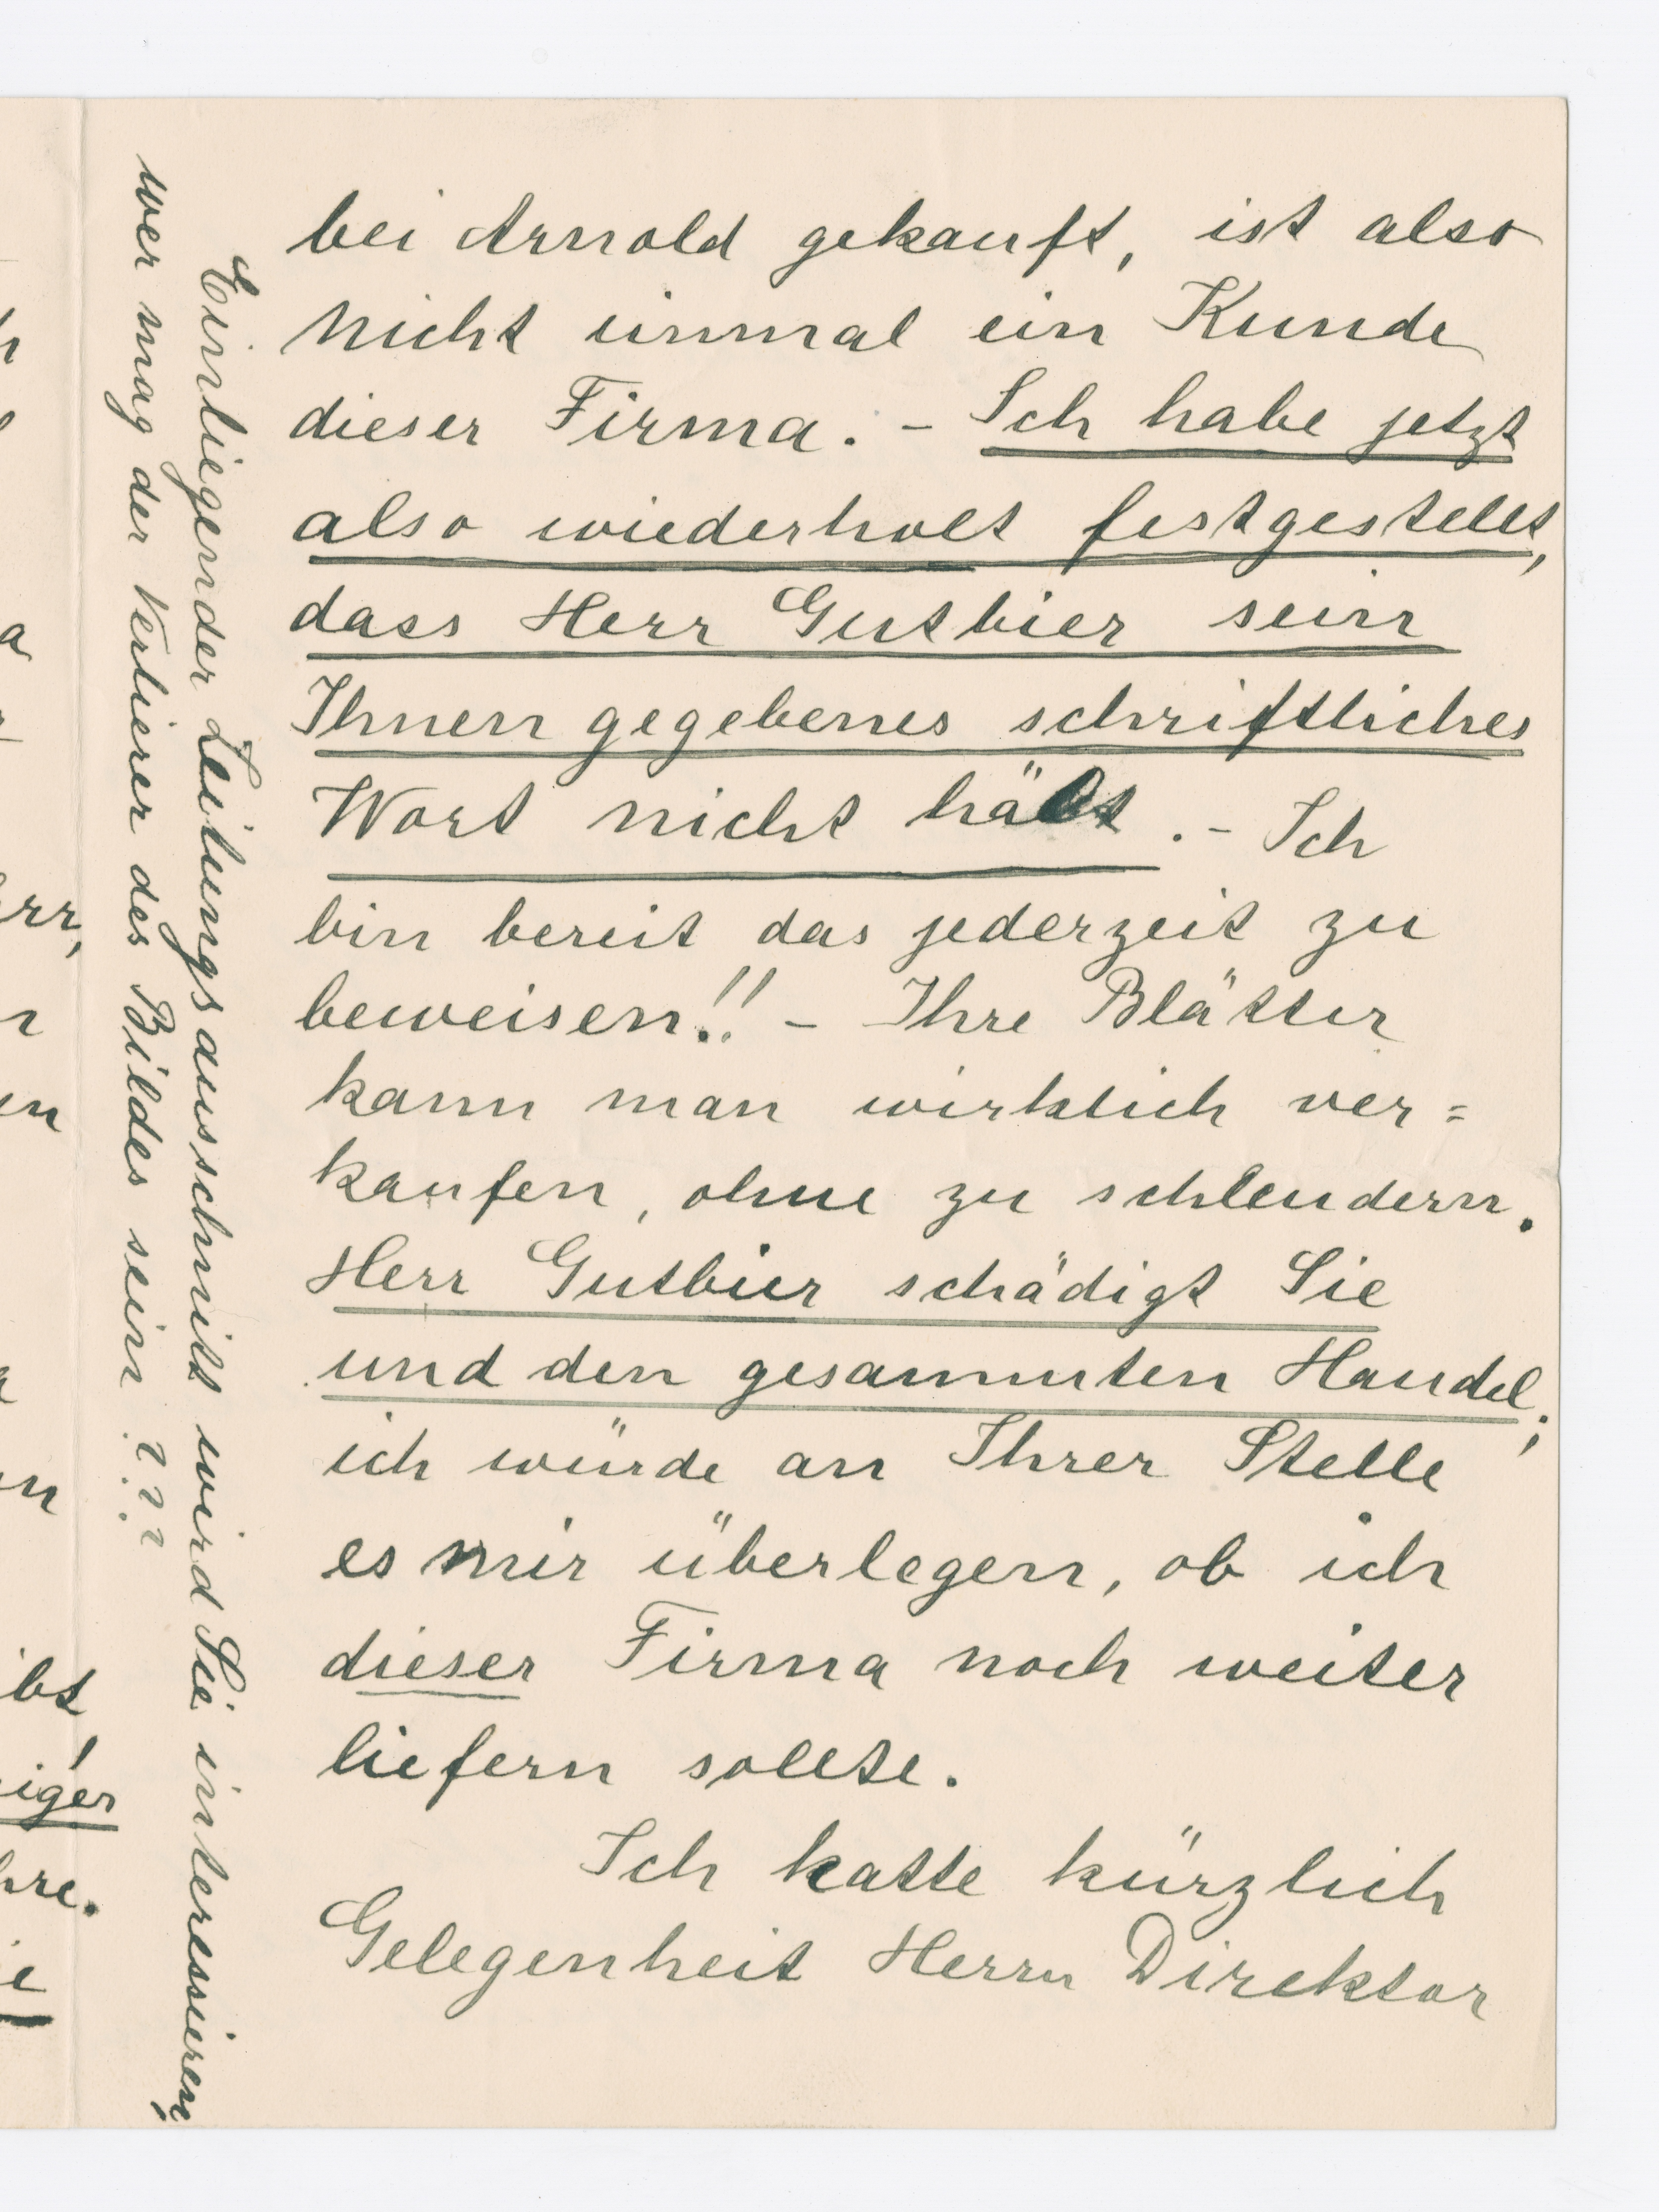 bei Arnold gekauft, ist also
nicht einmal ein Kunde
dieser Firma. – Ich habe jetzt
also wiederholt festgestellt,
dass Herr Gutbier sein
Ihnen gegebenes schriftliches
Wort nicht hält. – Ich
bin bereit das jederzeit zu
beweisen!! – Ihre Blätter
kann man wirklich ver=
kaufen, ohne zu schleudern.
Herr Gutbier schädigt Sie
und den gesammten Handel;
ich würde an Ihrer Stelle
es mir überlegen, ob ich
dieser Firma noch weiter
liefern sollte.
Ich hatte kürzlich
Gelegenheit Herrn Direktor
Einliegender Zeitungsausschnitt wird Sie interessieren;
wer mag der Verlierer des Bildes sein ???